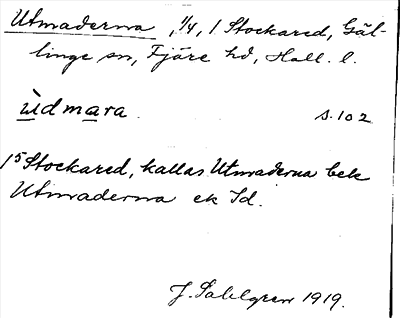 Utmaderna, 1/4, 1 Stockared, Gäl-
linge sn, Fjäre hd, Hall. l.
ùdmara. s. 102
1⁵ Stockared, kallas Utmaderna bek
Utmaderna ek Id.
J. Sahlgren 1919.